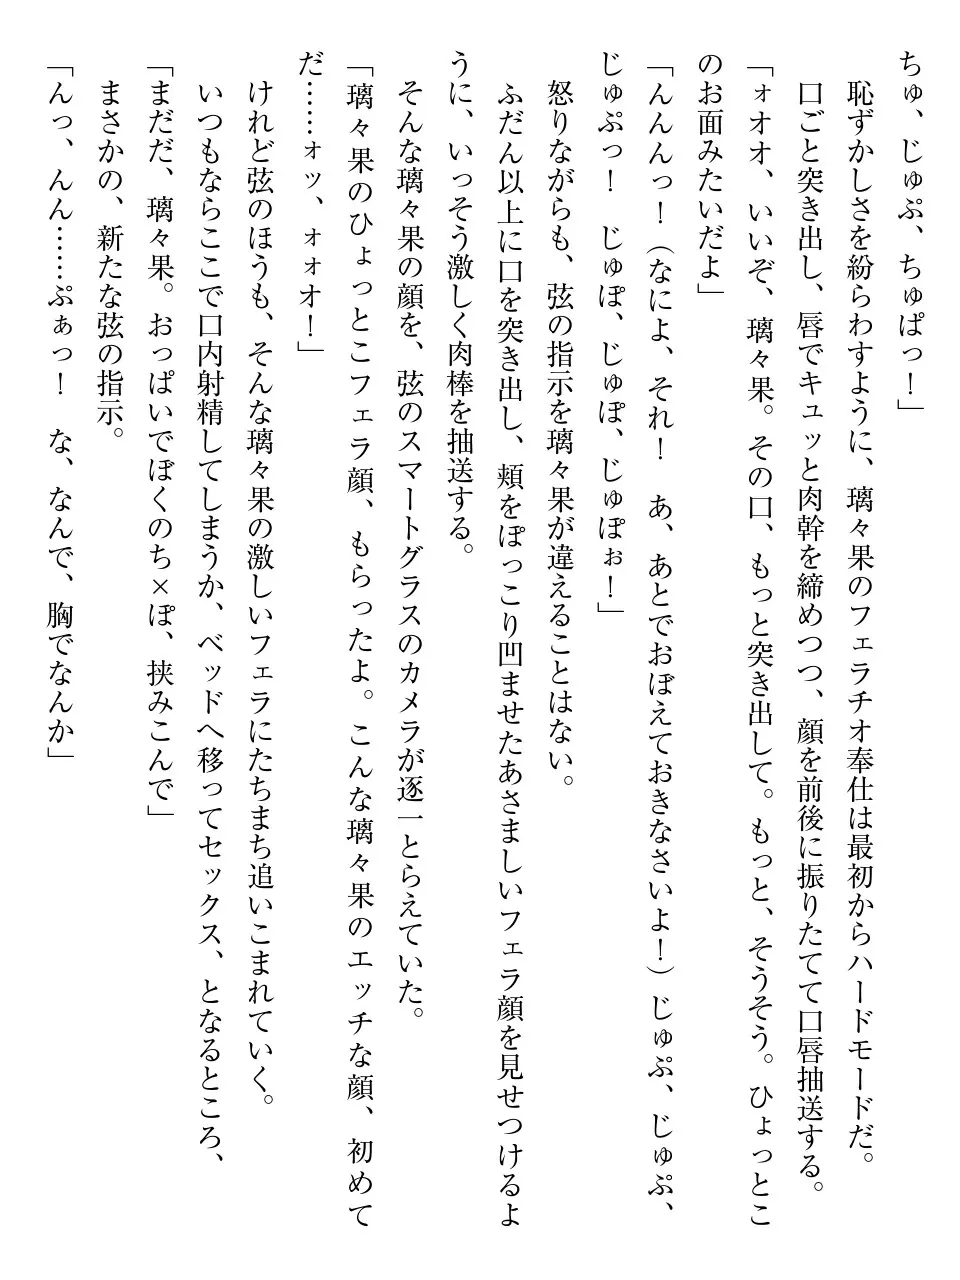 ちゅ、じゅぷ、ちゅぱっ！」
　恥ずかしさを紛らわすように、璃々果のフェラチオ奉仕は最初からハードモードだ。
　口ごと突き出し、唇でキュッと肉幹を締めつつ、顔を前後に振りたてて口唇抽送する。
「ォオオ、いいぞ、璃々果。その口、もっと突き出して。もっと、そうそう。ひょっとこ
のお面みたいだよ」
「んんんっ！（なによ、それ！　あ、あとでおぼえておきなさいよ！）じゅぷ、じゅぷ、
じゅぷっ！　じゅぽ、じゅぽ、じゅぽぉ！」
　怒りながらも、弦の指示を璃々果が違えることはない。
　ふだん以上に口を突き出し、頬をぽっこり凹ませたあさましいフェラ顔を見せつけるよ
うに、いっそう激しく肉棒を抽送する。
　そんな璃々果の顔を、弦のスマートグラスのカメラが逐一とらえていた。
「璃々果のひょっとこフェラ顔、もらったよ。こんな璃々果のエッチな顔、初めて
だ……ォッ、ォォオ！」
　けれど弦のほうも、そんな璃々果の激しいフェラにたちまち追いこまれていく。
　いつもならここで口内射精してしまうか、ベッドへ移ってセックス、となるところ、
「まだだ、璃々果。おっぱいでぼくのち×ぽ、挟みこんで」
　まさかの、新たな弦の指示。
「んっ、んん……ぷぁっ！　な、なんで、胸でなんか」